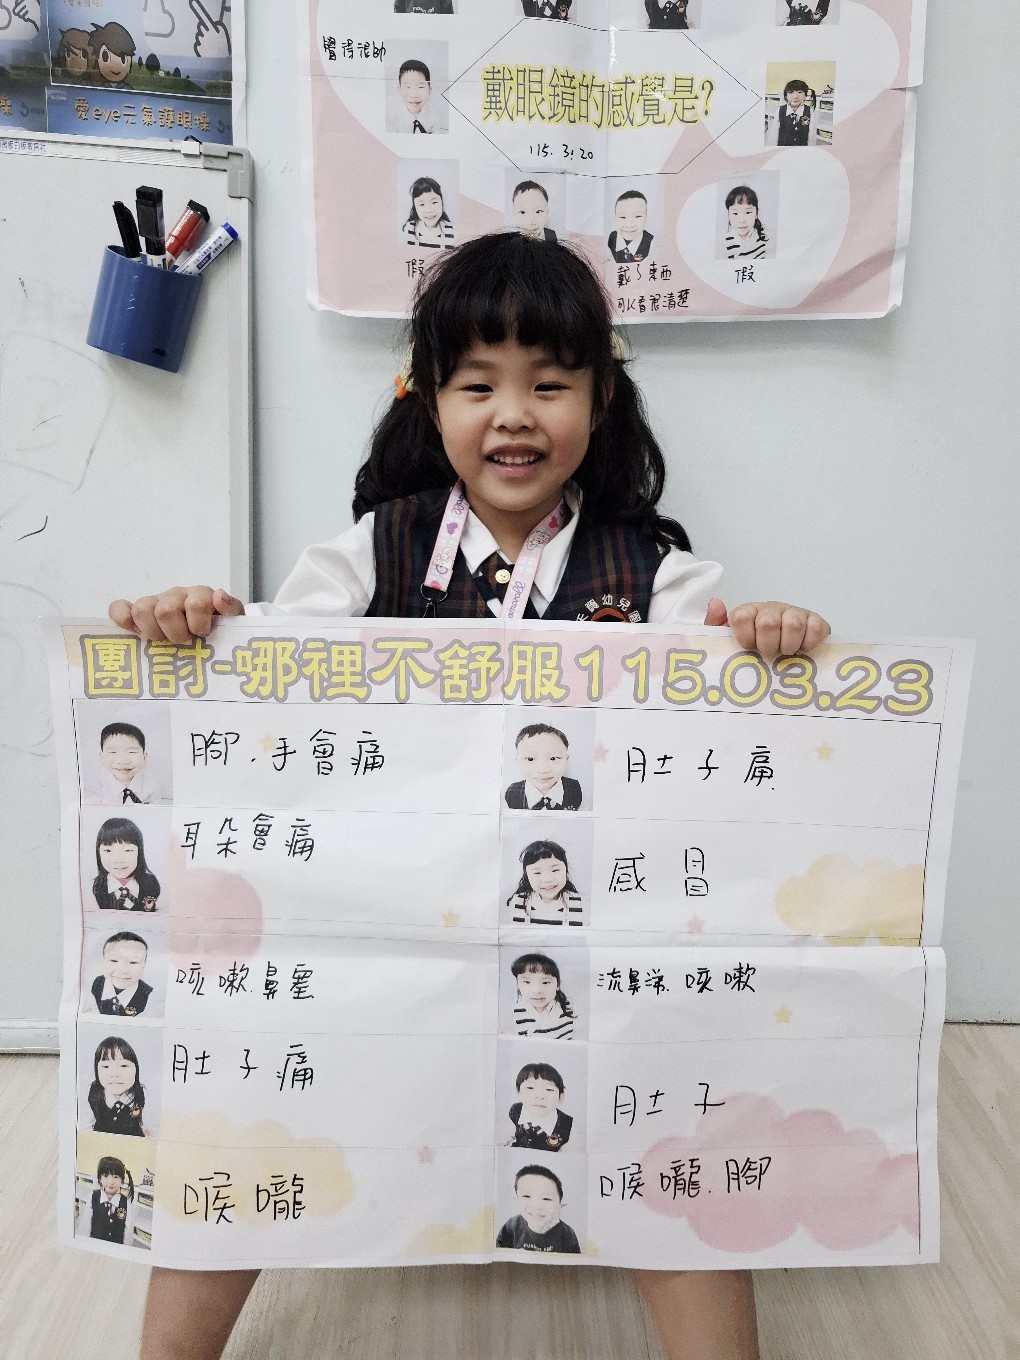 愛eye元氣護眼操
覺得很帥
戴眼鏡的感覺是?
115.3.20
假
戴了東西
可以看很清楚
假
天寶幼兒園
團討-哪裡不舒服115.03.23
腳.手會痛
肚子痛
耳朵會痛
感冒
咳嗽.鼻塞
流鼻涕.咳嗽
肚子痛
肚子
喉嚨
喉嚨.腳